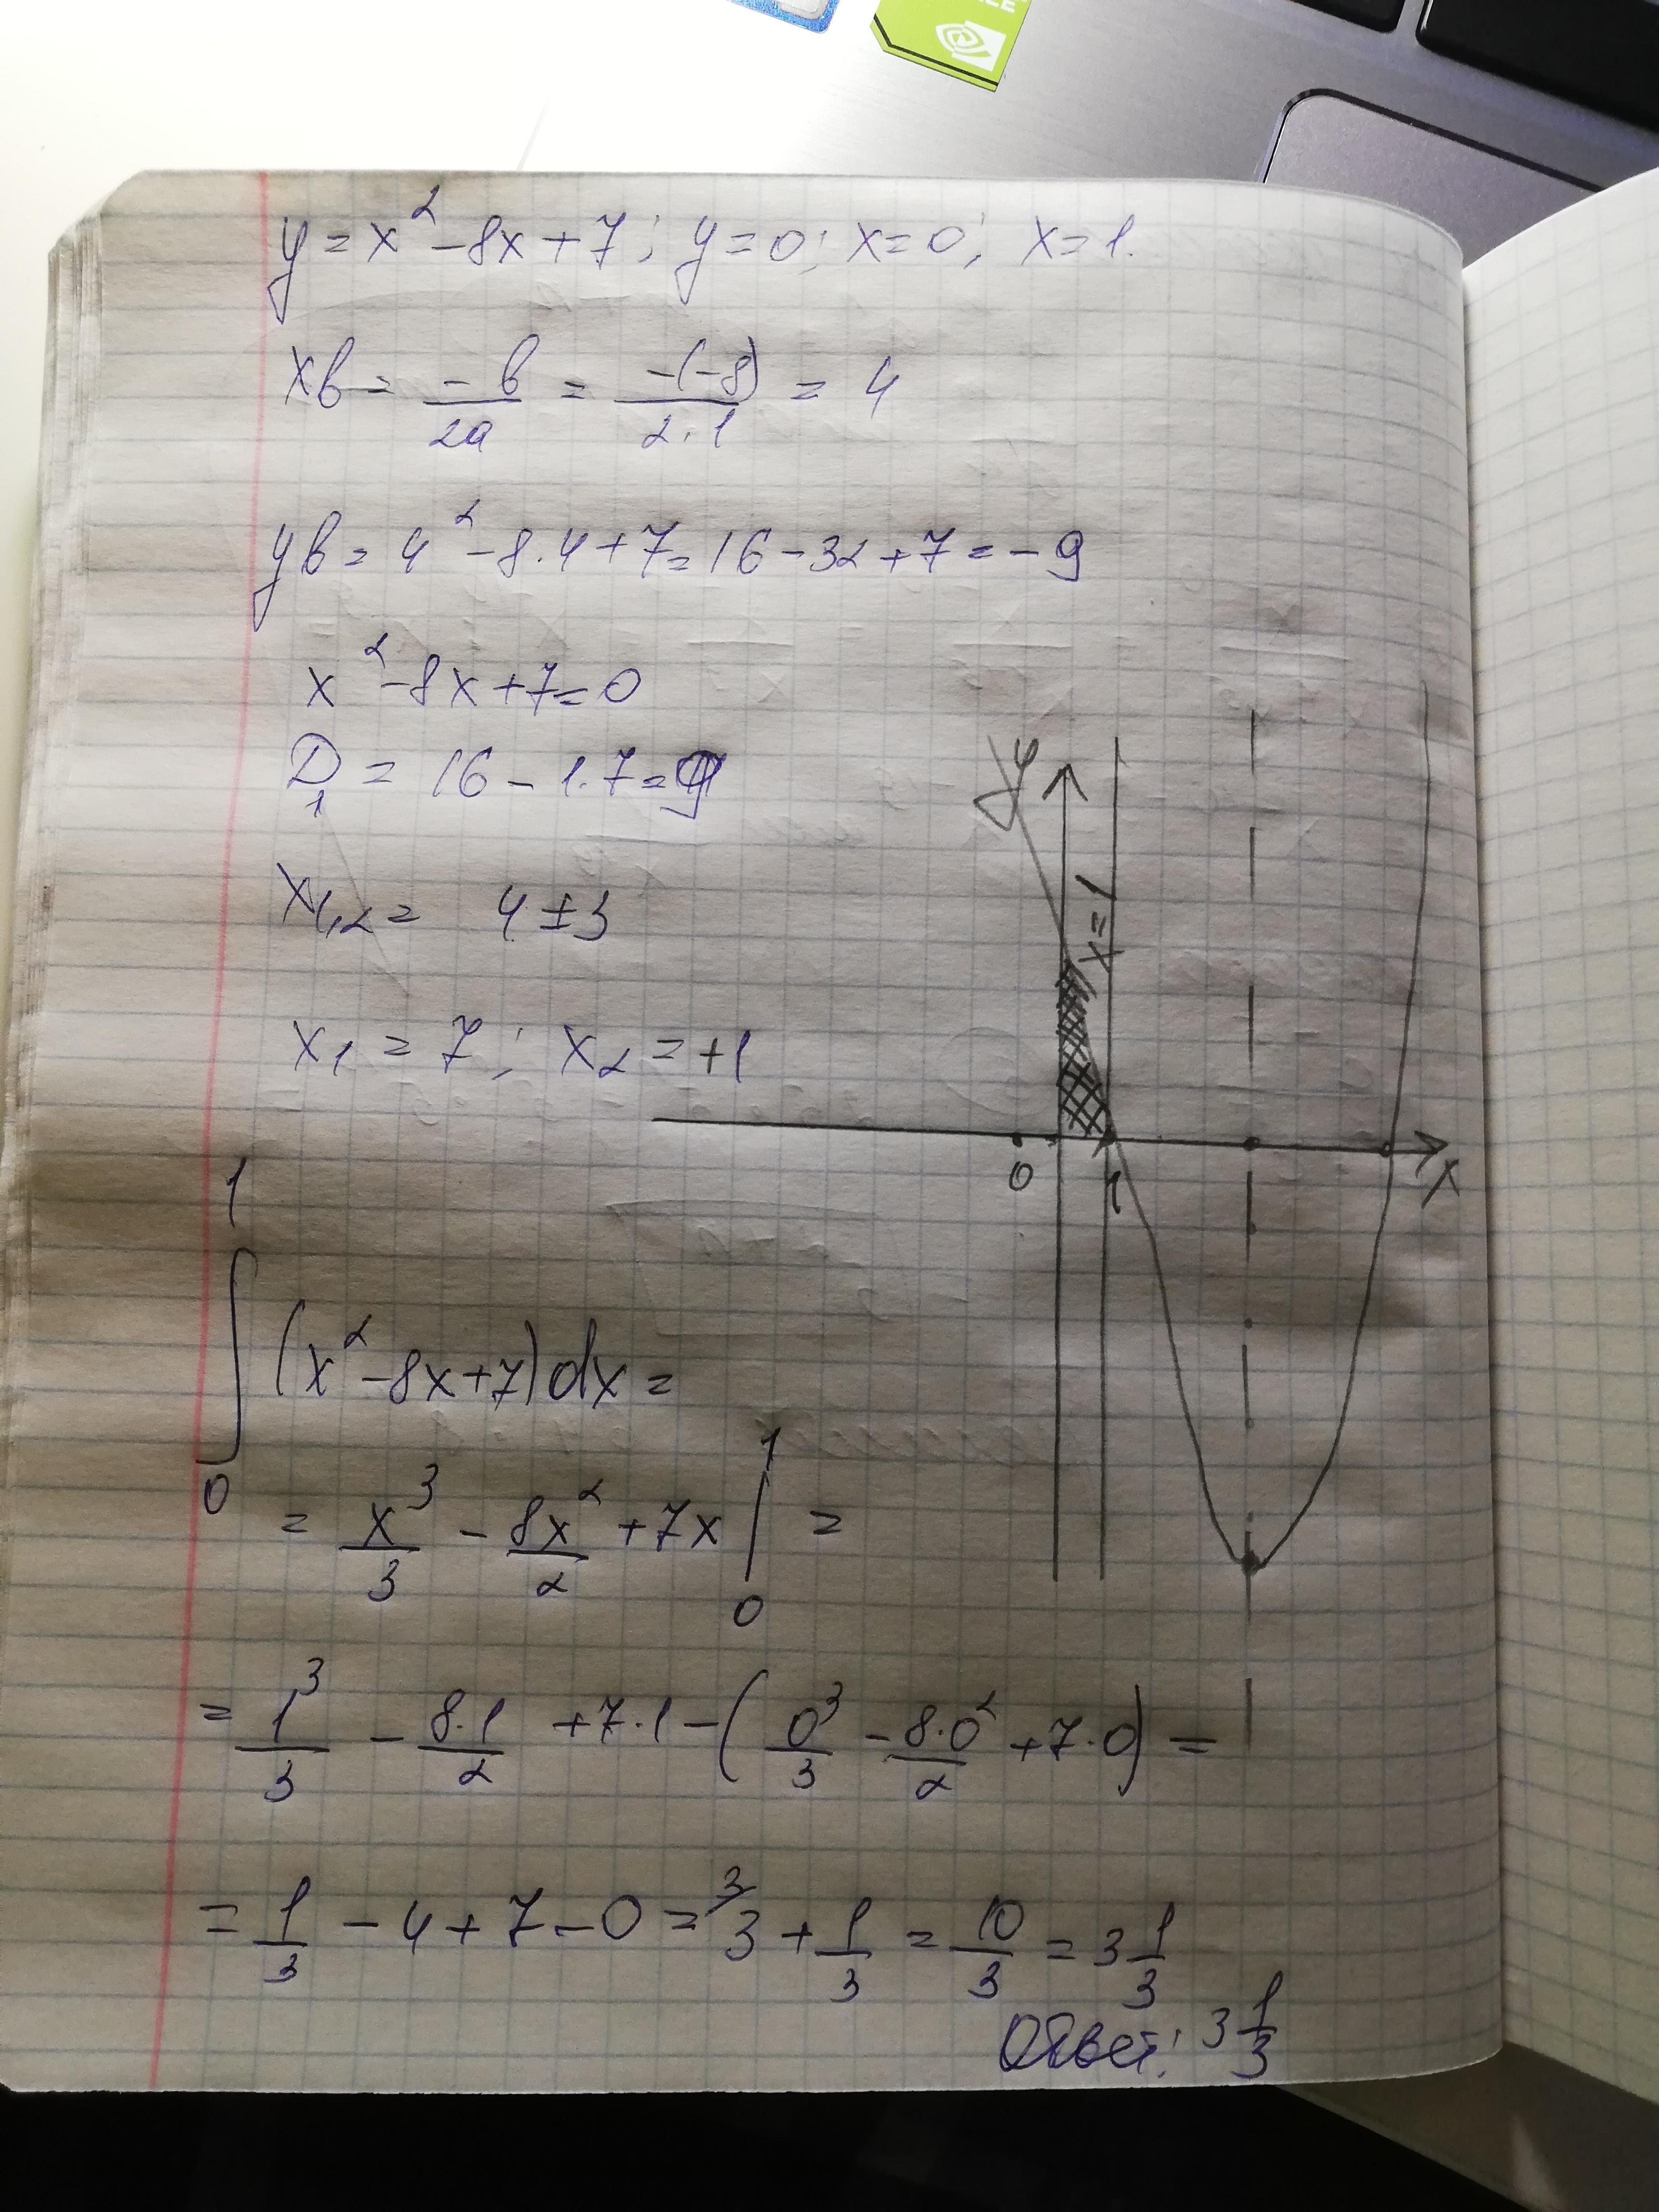 y = x² - 8x + 7; y = 0; x = 0; x = 1.
xв = -в/2a = -(-8)/2·1 = 4
yв = 4² - 8·4 + 7 = 16 - 32 + 7 = -9
x² - 8x + 7 = 0
D₁ = 16 - 1·7 = 9
x₁,₂ = 4 ± 3
x₁ = 7; x₂ = +1
y
x = 1
0 1 x
∫₀¹ (x² - 8x + 7) dx =
= x³/3 - 8x²/2 + 7x |₀¹ =
= 1³/3 - 8·1/2 + 7·1 - (0³/3 - 8·0²/2 + 7·0) =
= 1/3 - 4 + 7 - 0 = ³⁄3 + 1/3 = 10/3 = 3 1/3
Ответ: 3 1/3